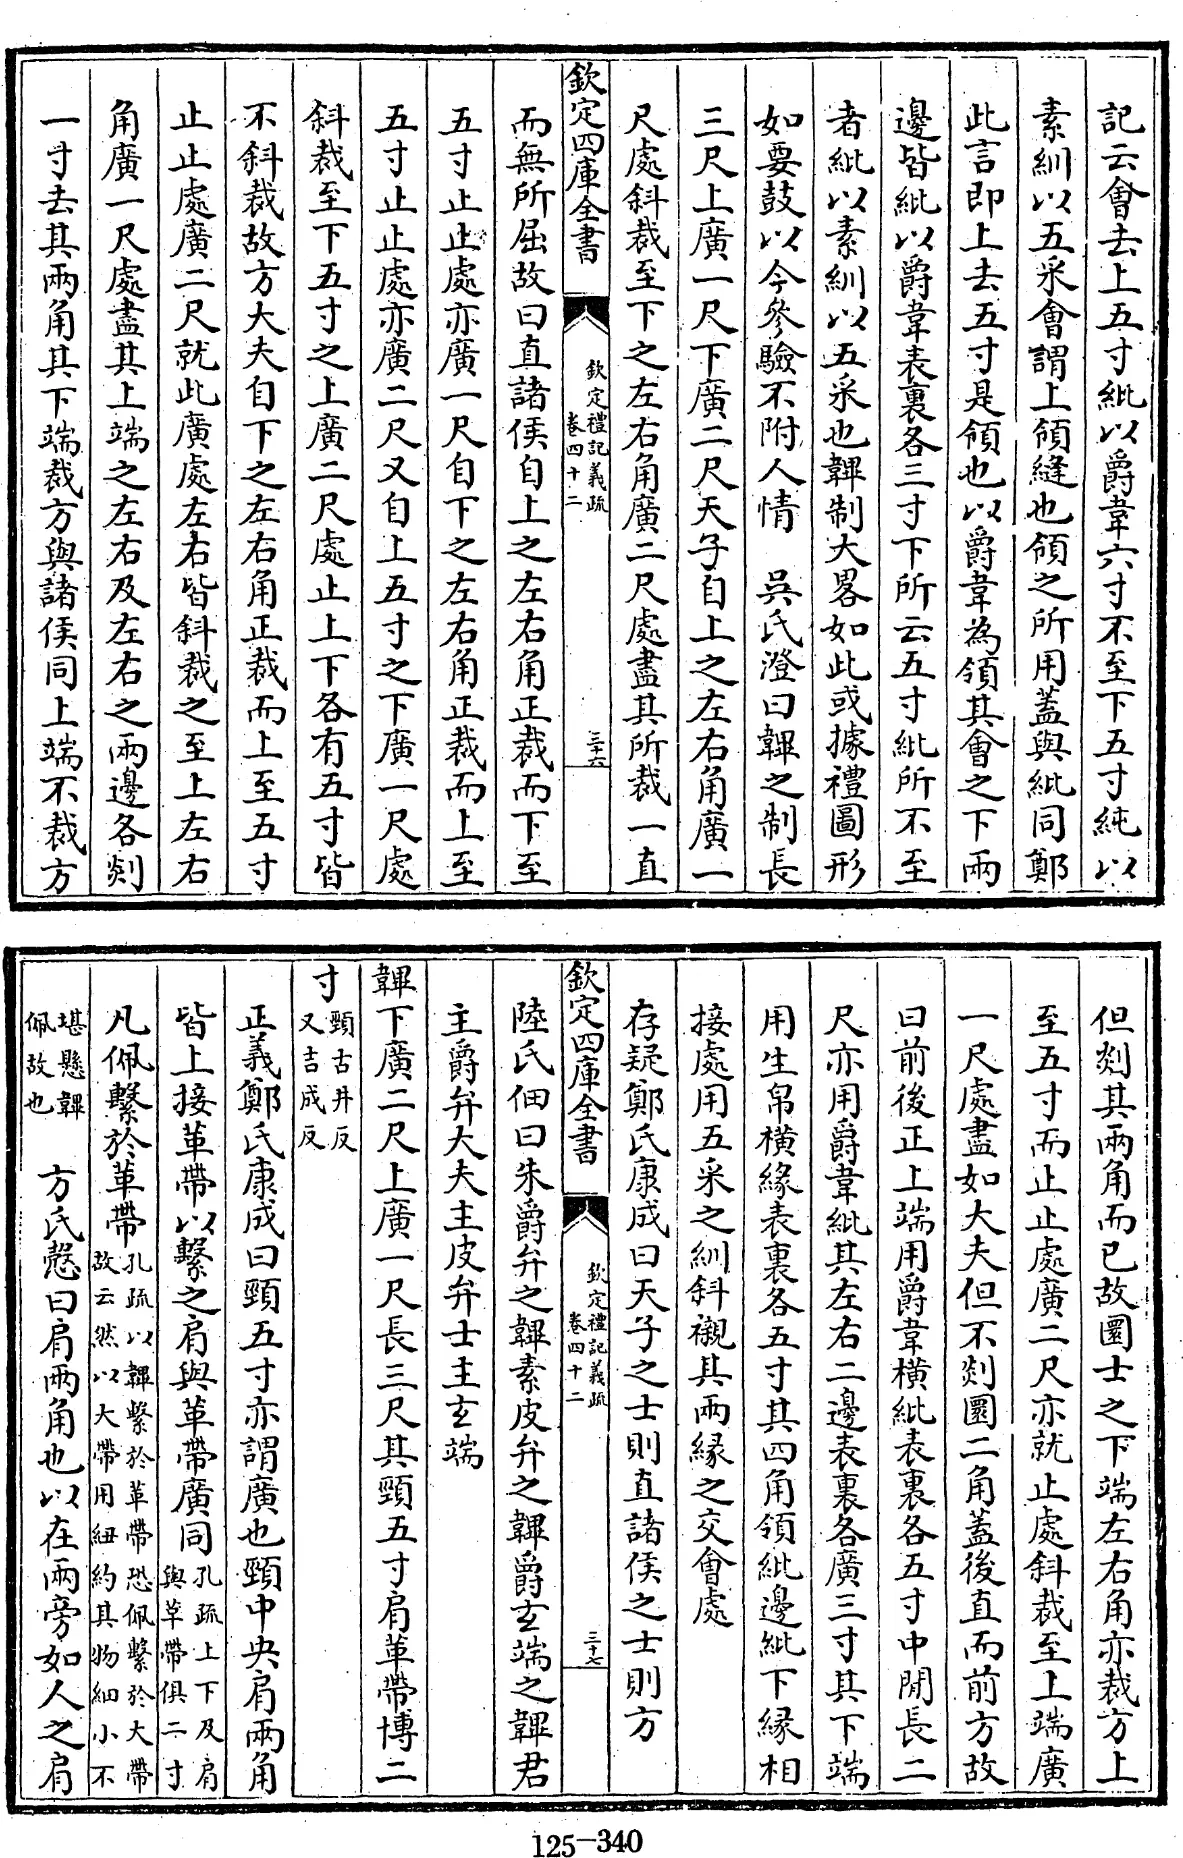 記云會去上五寸紕以爵韋六寸不至下五寸純以
素紃以五采會謂上領縫也領之所用蓋與紕同鄭
此言即上去五寸是領也以爵韋為領其會之下兩
邊皆紕以爵韋表裏各三寸下所云五寸紕所不至
者紕以素紃以五采也韠制大畧如此或據禮圖形
如要鼓以今參驗不附人情　吳氏澄曰韠之制長
三尺上廣一尺下廣二尺天子自上之左右角廣一
尺處斜裁至下之左右角廣二尺處盡其所裁一直
欽定四庫全書
欽定禮記義疏
卷四十二
三十六
而無所屈故曰直諸侯自上之左右角正裁而下至
五寸止止處亦廣一尺自下之左右角正裁而上至
五寸止止處亦廣二尺又自上五寸之下廣一尺處
斜裁至下五寸之上廣二尺處止上下各有五寸皆
不斜裁故方大夫自下之左右角正裁而上至五寸
止止處廣二尺就此廣處左右皆斜裁之至上左右
角廣一尺處盡其上端之左右及左右之兩邊各剡
一寸去其兩角其下端裁方與諸侯同上端不裁方
但剡其兩角而已故圜士之下端左右角亦裁方上
至五寸而止止處廣二尺亦就止處斜裁至上端廣
一尺處盡如大夫但不剡圜二角蓋後直而前方故
曰前後正上端用爵韋橫紕表裏各五寸中閒長二
尺亦用爵韋紕其左右二邊表裏各廣三寸其下端
用生帛橫緣表裏各五寸其四角領紕邊紕下緣相
接處用五采之紃斜襯其兩緣之交會處
存疑鄭氏康成曰天子之士則直諸侯之士則方
欽定四庫全書
欽定禮記義疏
卷四十二
三十七
陸氏佃曰朱爵弁之韠素皮弁之韠爵玄端之韠君
主爵弁大夫主皮弁士主玄端
韠下廣二尺上廣一尺長三尺其頸五寸肩革帶博二
寸頸古井反
又吉成反
正義鄭氏康成曰頸五寸亦謂廣也頸中央肩兩角
皆上接革帶以繫之肩與革帶廣同孔疏上下及肩
與革帶俱二寸
凡佩繫於革帶孔疏以韠繫於革帶恐佩繫於大帶
故云然以大帶用紐約其物細小不
堪懸韠
佩故也　方氏慤曰肩兩角也以在兩旁如人之肩
125-340